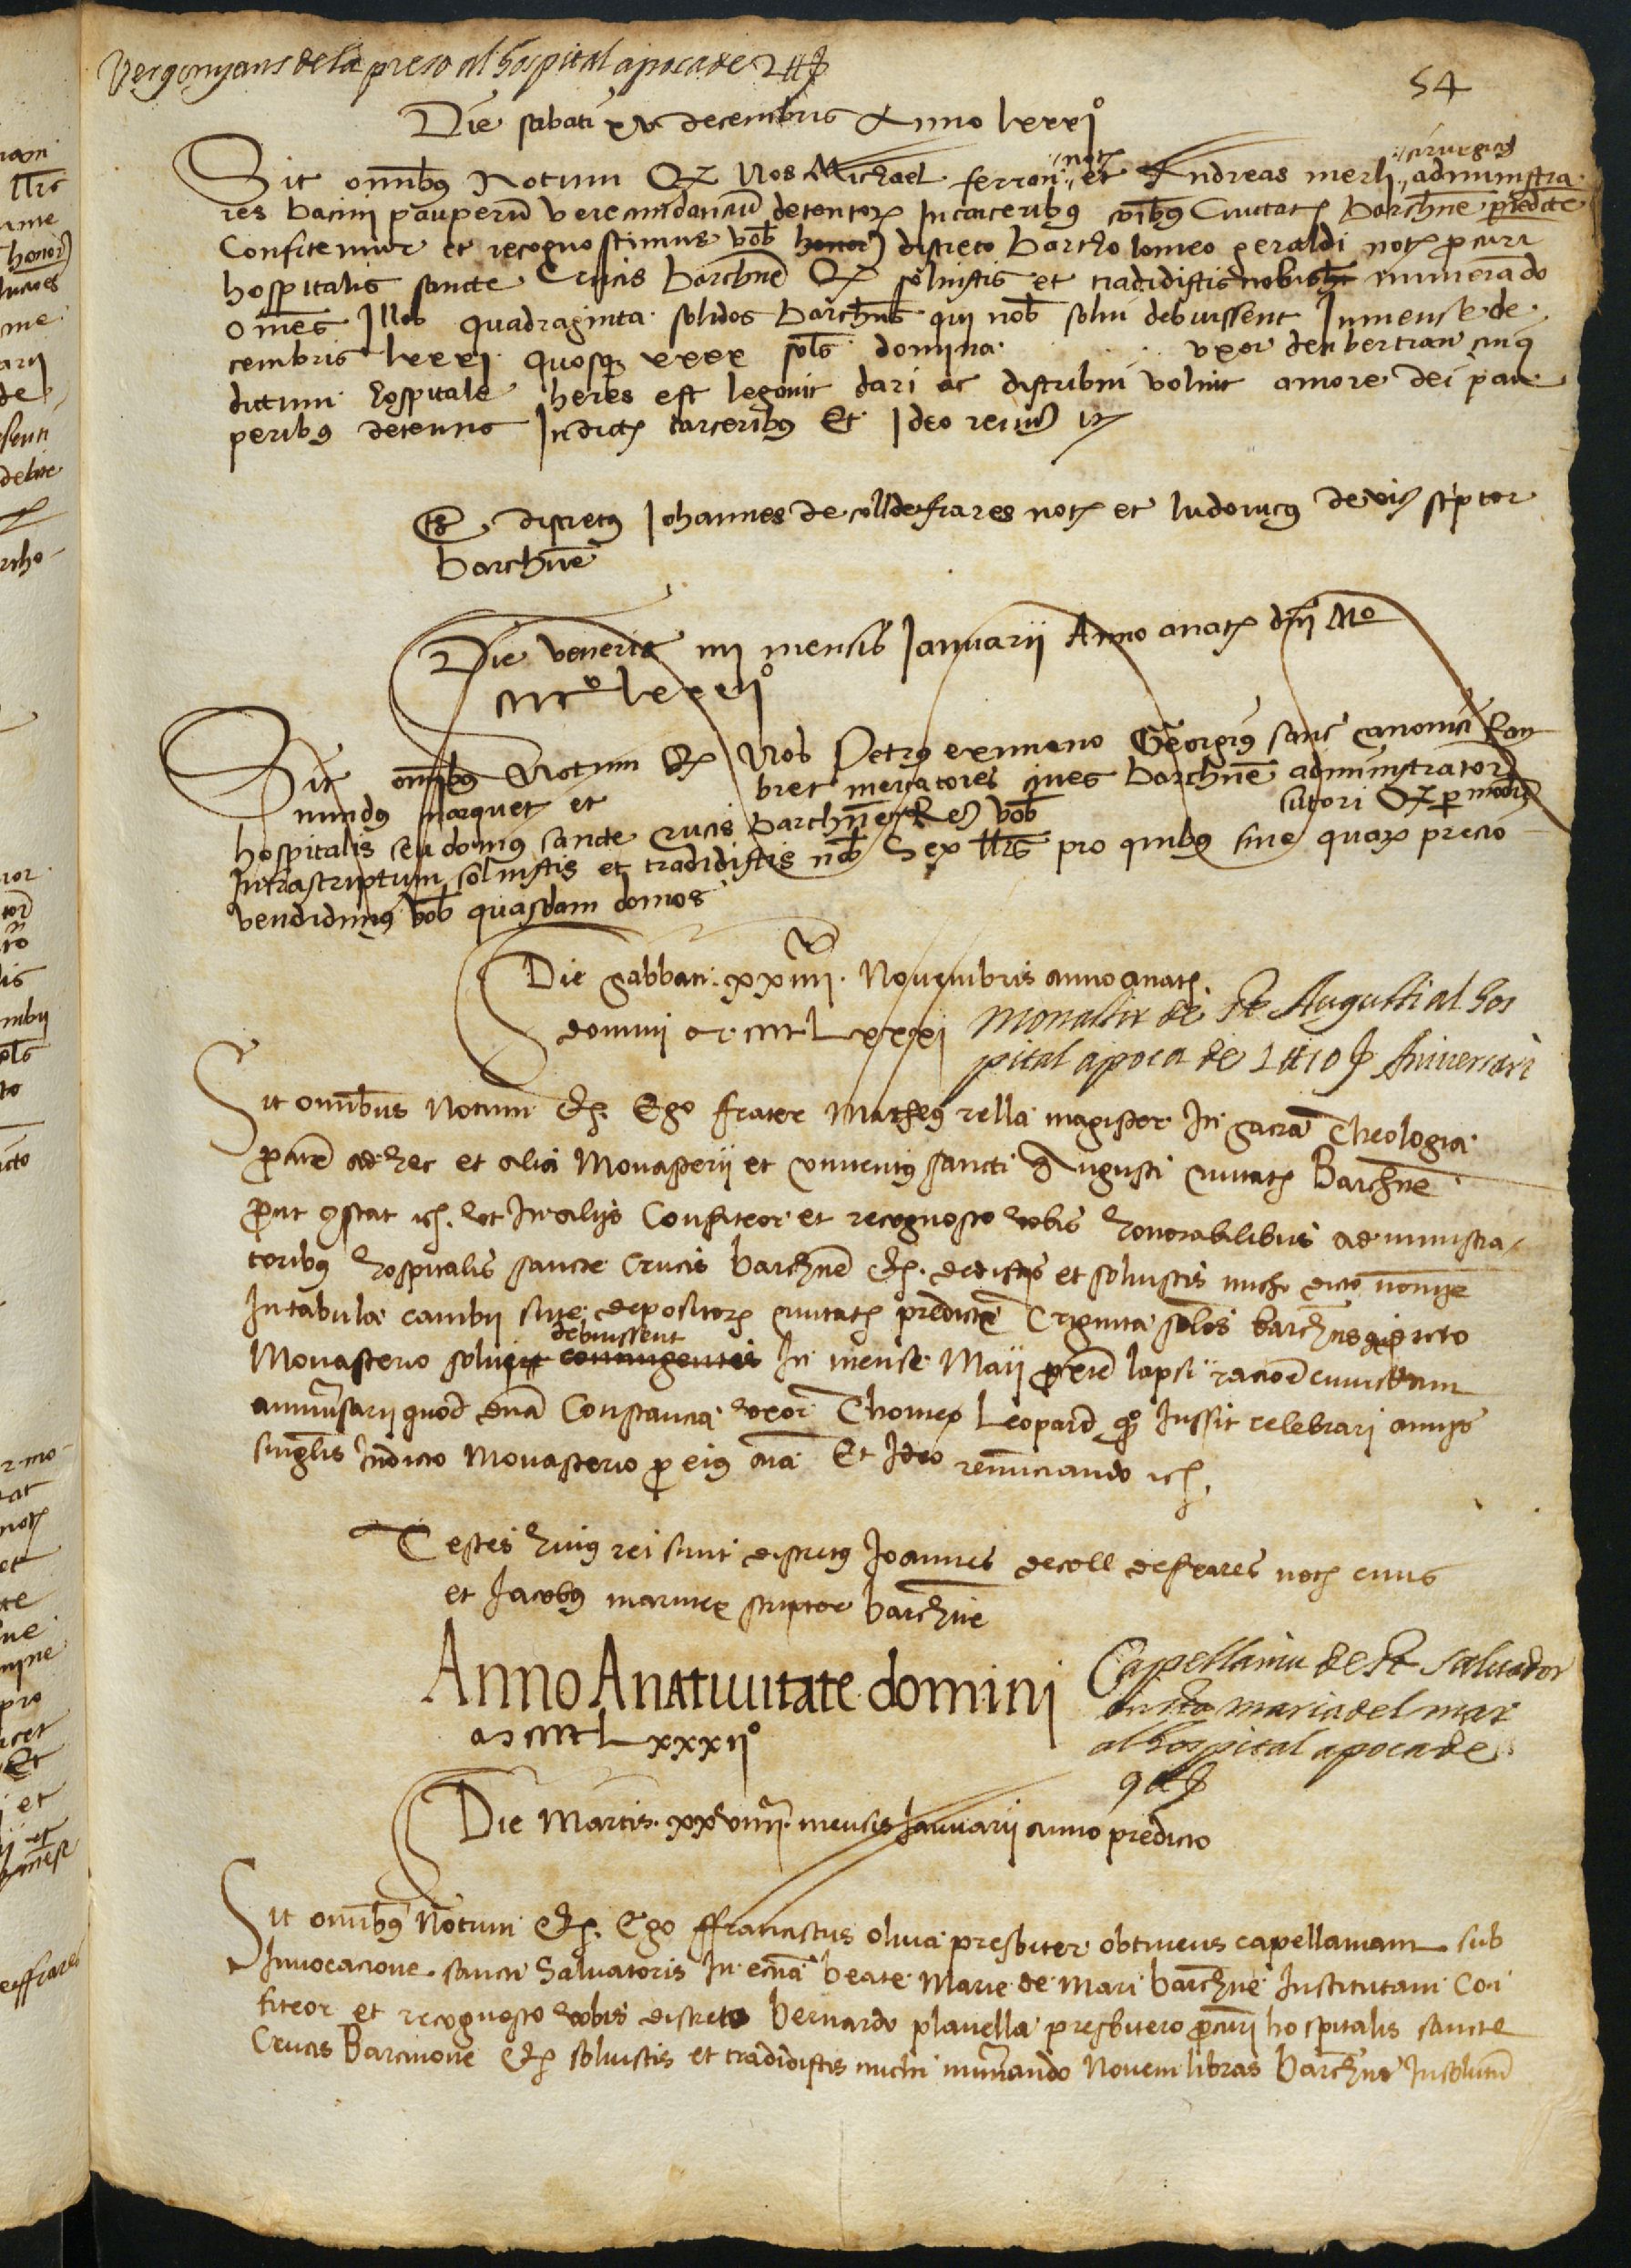 Vergonyans de la preso al hospital apoca de 2 ₶
54
Die sabati xv decembris Anno lxxxi°
Sit omnibus Notum Q Nos Michael ferran not et Andreas merli cirurgicus administra
res bacini pauperum verecundancium detentor In carceribus Civitat barchne predicte
Confitemur et recognoscimus vob honor discreto bartholomeo geraldi not procuri
hospitalis sancte Crucis barchne Q solvistis et tradidistis nobis numerando
omes Illos quadraginta solidos barchns qui nob solvi debuissent In mense de
cembris lxxxi quosq xxxx sols domina uxor den bertran cuius
dictum hospitale heres est legavit dari ac distribui voluit amore dei pau
peribus detentis In dict carceribus Et Ideo renun
discretus Johannes de colldefrares not et ludovicus scriptor
barchne
Die veneris iiii mensis Januarii Anno anat dni Mo
cccc lxxxii°
Sit omnibus Notum Q Nos Petrus eximeno Georgius sans canonici Ray
mundus marquet et bret mercatores cives barchne administrator
hospitalis seu domus sancte crucis barchne vob sutori Q per modum
Infrascriptum solvistis et tradidistis nob Sex llrs pro quibus sive quar precio
vendidimus vob quasdam domos
Die sabbati xxiiii Novembris anno anat
domini cccc Lxxxi
Monastir de St Augusti al hos
pital apoca de 1 ₶ 10 Aniversari
Sit omnibus Notum Q Ego frater Matheus rella magister In sacra Theologia
procur ad hec et alia Monasterii et conventus sancti Augusti civitat Barchne
prout constat et In aliis Confiteor et recognosco vobis honorabilibus administra
toribus hospitalis sancte Crucis barchne Q dedistis et solvistis michi dicto nomine
In tabula cambii sive depositor civitat predicte Triginta solos barchns qui dicto
Monasterio solvi debuissent contingentes In mense Maii proxime lapsi racione cuiusdam
anniversarii quod dna Constancia uxor Thome Leopard quo Jussit celebrari annis
singlis In dicto Monasterio pro eius aia Et Ideo renunciando
Testes huius rei sunt discretus Joannes de coll de frares not civis
et Jacobus marines scriptor barchne
Anno Anativitate domini
cccc Lxxxii°
Capellania de St salvador
en sta maria del mar
al hospital apoca de
9 ₶
Die Martis xxviiii mensis Januarii anno predicto
Sit omnibus Notum Q Ego ffranciscus oliva presbiter obtinens capellaniam sub
Invocacione sancti Salvatoris In eccla beate Marie de Mari barchne Institutam Con
fiteor et recognosco vobis discreto bernardo planella presbitero procuri hospitalis sancte
Crucis Barcinone Q solvistis et tradidistis michi numerando Novem libras barchns In solutum